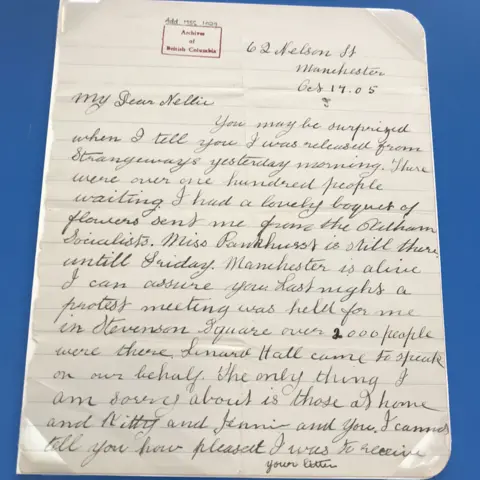 Add. MSS. 1029
Archives
of
British Columbia
62 Nelson St
Manchester
Oct 17.05
My Dear Nellie
You may be surprized
when I tell you I was released from
Strangeways yesterday morning. There
were over one hundred people
waiting. I had a lovely boquet of
flowers sent me from the Oldham
Socialists. Miss Pankhurst is still there
untill Friday. Manchester is alive
I can assure you. Last night a
protest meeting was held for me
in Stevenson Square over 2000 people
were there. Hall came to speak
on our behalf. The only thing I
am sorry about is those at home
and Kitty and Jennie and you. I cannot
tell you how pleased I was to receive
your letter